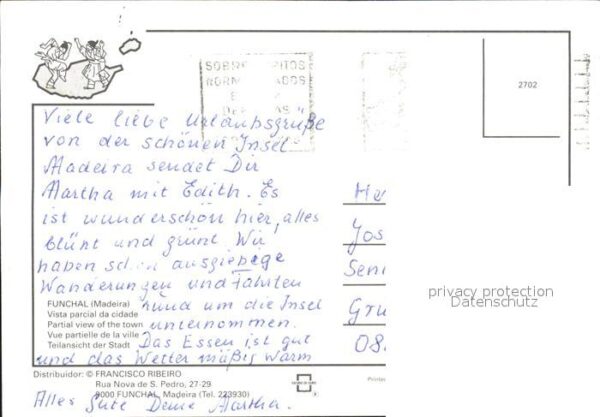 SOBRE
2702
Viele liebe Urlaubsgrüße
von der schönen Insel
Madeira sendet Dir
Martha mit Edith. Es
ist wunderschön hier, alles
blüht und grünt. Wir
haben schon ausgiebege
Wanderungen und Fahrten
rund um die Insel
unternommen.
Das Essen ist gut
und das Wetter mäßig warm
Alles Gute Deine Martha.
FUNCHAL (Madeira)
Vista parcial da cidade
Partial view of the town
Vue partielle de la ville
Teilansicht der Stadt
Distribuidor: © FRANCISCO RIBEIRO
Rua Nova de S. Pedro, 27-29
9000 FUNCHAL, Madeira (Tel. 223930)
He
Jos
Seni
Gru
08.
privacy protection
Datenschutz
Printed